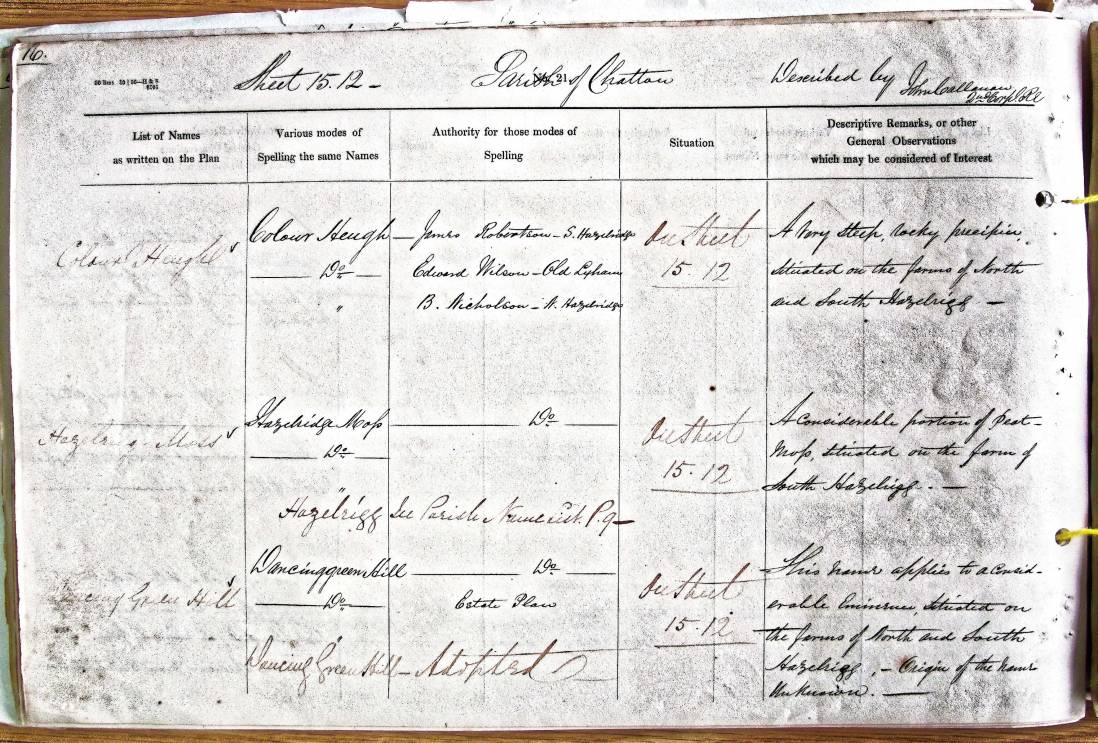 16.
Sheet 15.12 - Parish of Chatton Described by John Callanan
2nd Corpl RE
List of Names
as written on the Plan
Various modes of
Spelling the same Names
Authority for those modes of
Spelling
Situation
Descriptive Remarks, or other
General Observations
which may be considered of Interest
Colour Heugh
Colour Heugh — James Robertson - S. Hazelridge
Do Edward Wilson - Old Lyham
" B. Nicholson - N. Hazelridge
On Sheet
15.12
A Very steep, rocky precipice,
situated on the farms of North
and South Hazelrigg —
Hazelrigg Moss
Hazelridge Moss Do
Do
"
Hazelrigg See Parish Name List. P. 9 —
On Sheet
15.12
A Considerable portion of Peat-
Moss, situated on the farm of
South Hazelrigg. —
Dancing Green Hill
Dancinggreen Hill Do
Do Estate Plan
"
Dancing Green Hill — Adopted
On Sheet
15.12
This name applies to a consid-
erable Eminence, situated on
the farms of North and South
Hazelrigg, - Origin of the name
Unknown. —